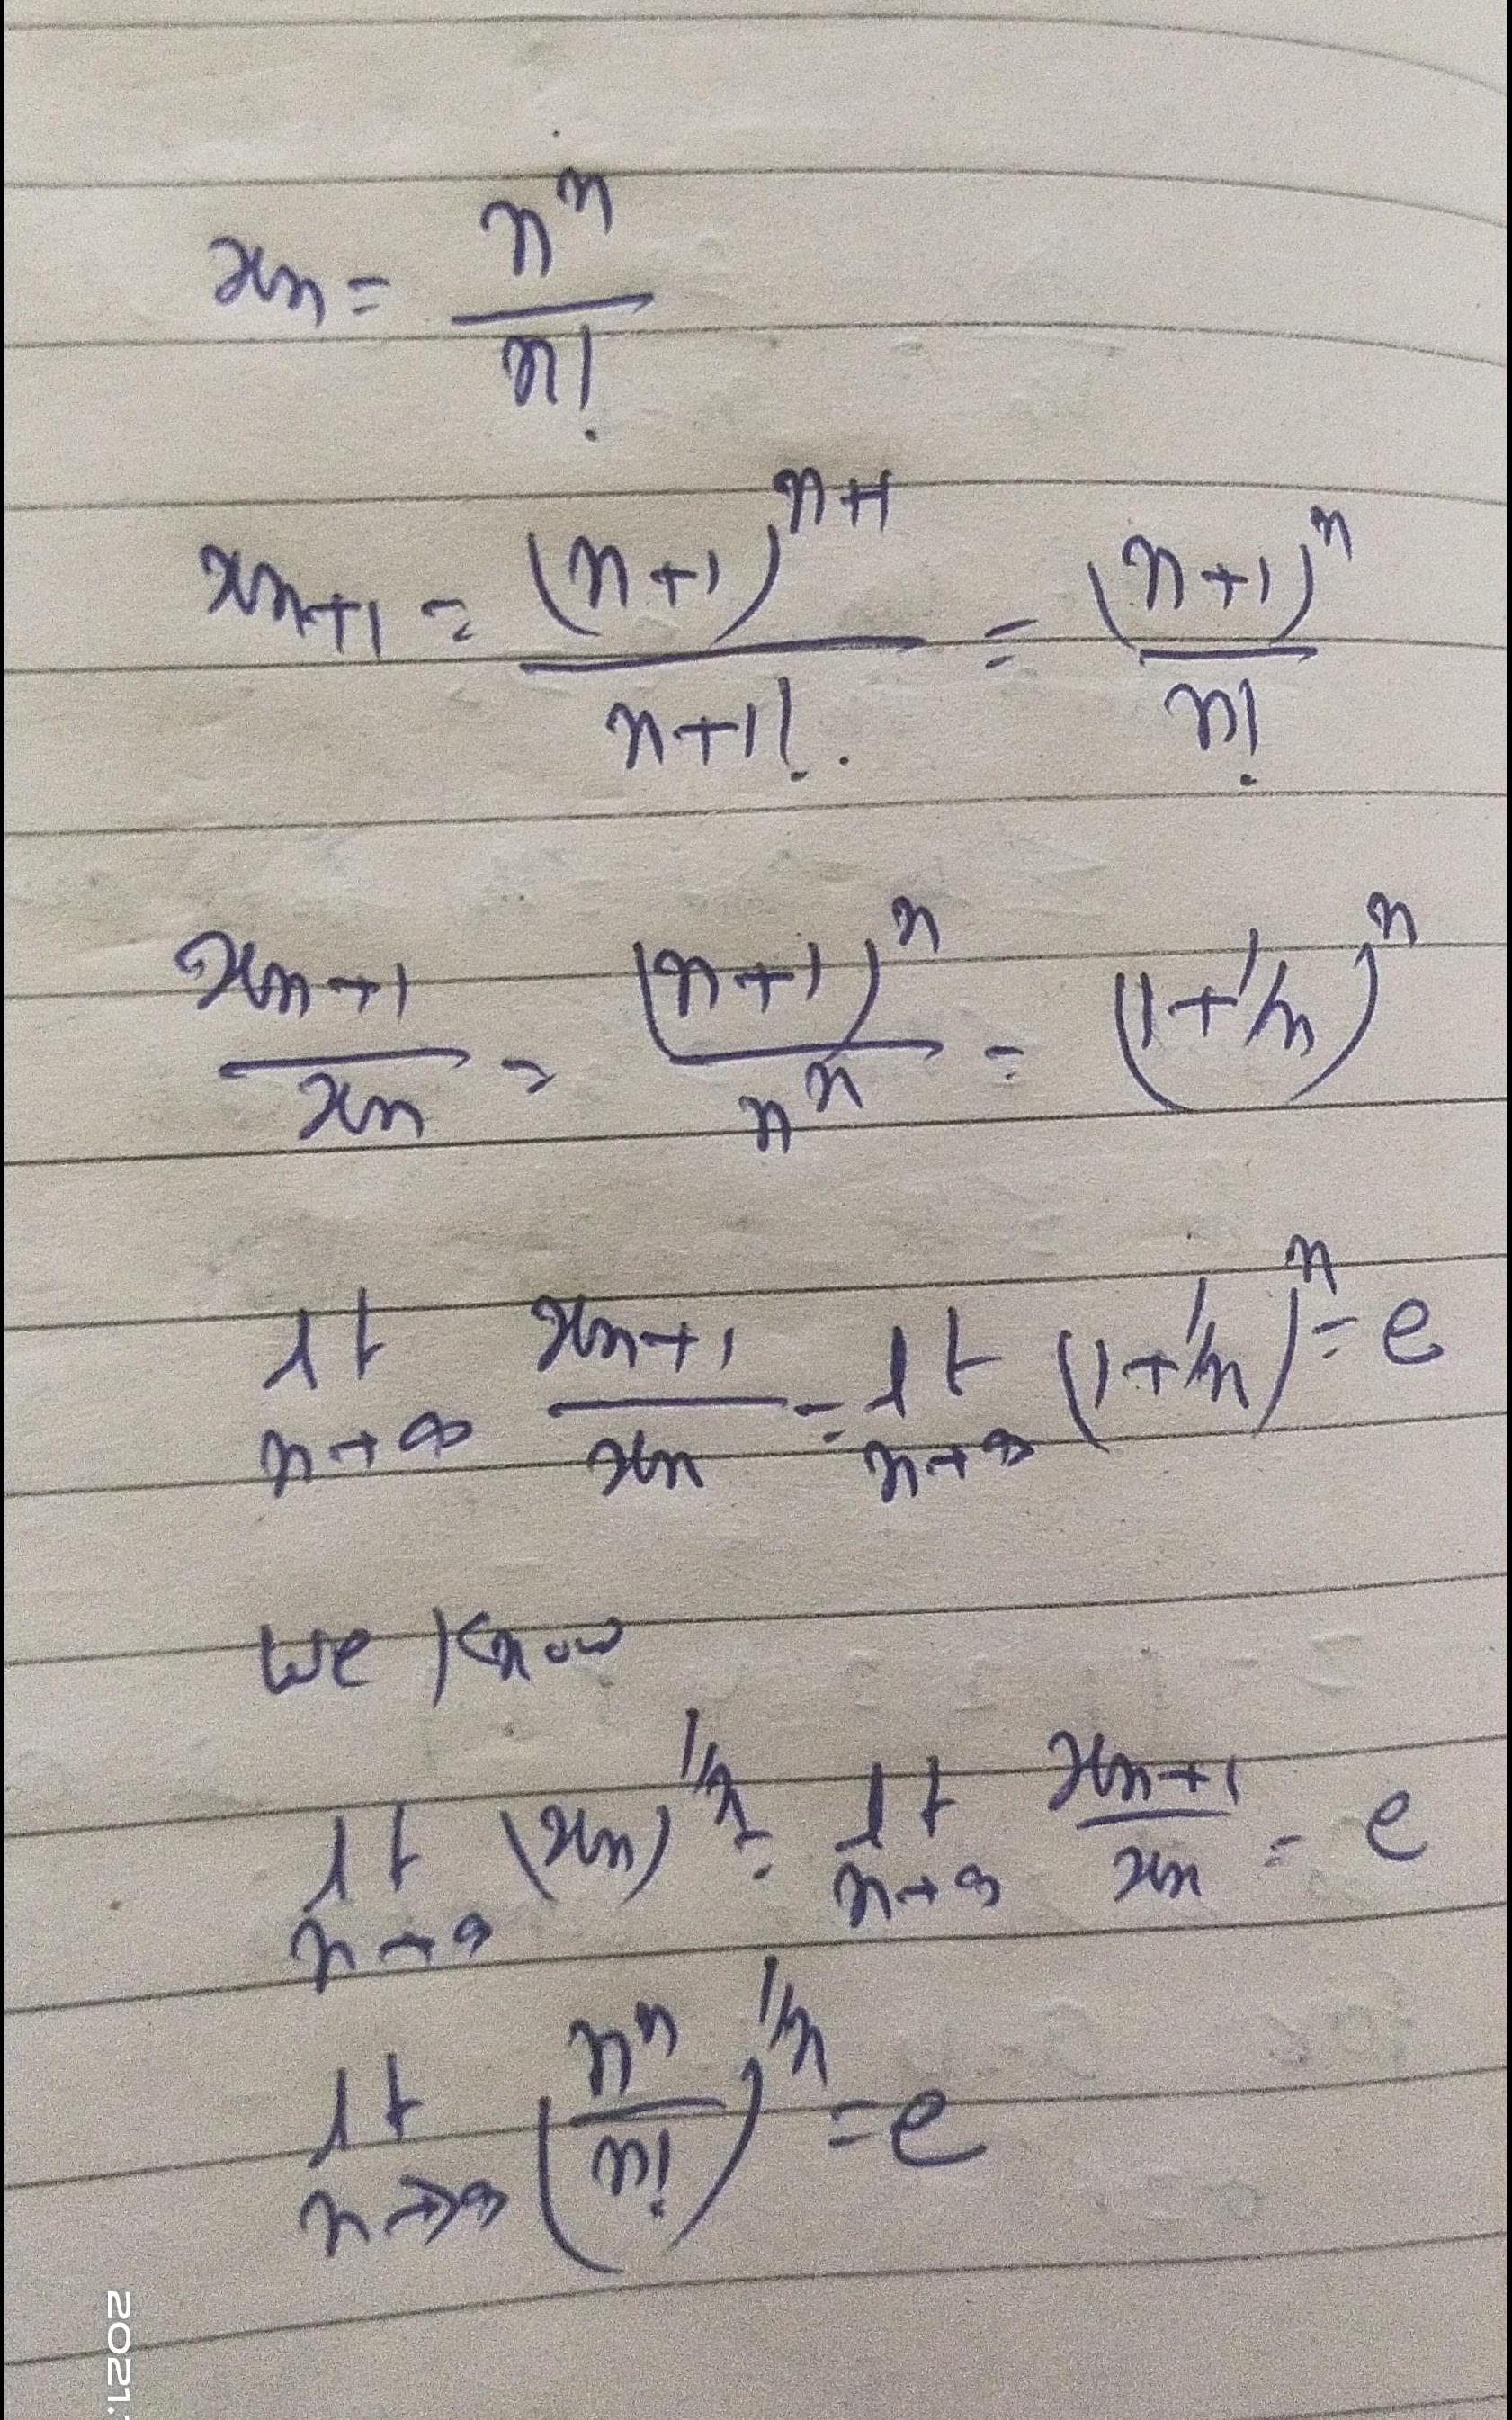 xn = n^n / n!
xn+1 = (n+1)^n+1 / n+1! . = (n+1)^n / n!
xn+1 / xn = (n+1)^n / n^n = (1+1/n)^n
lt n→∞ xn+1 / xn = lt n→∞ (1+1/n)^n = e
we know
lt n→∞ (xn)^1/n = lt n→∞ xn+1 / xn = e
lt n→∞ (n^n / n!)^1/n = e
2021.